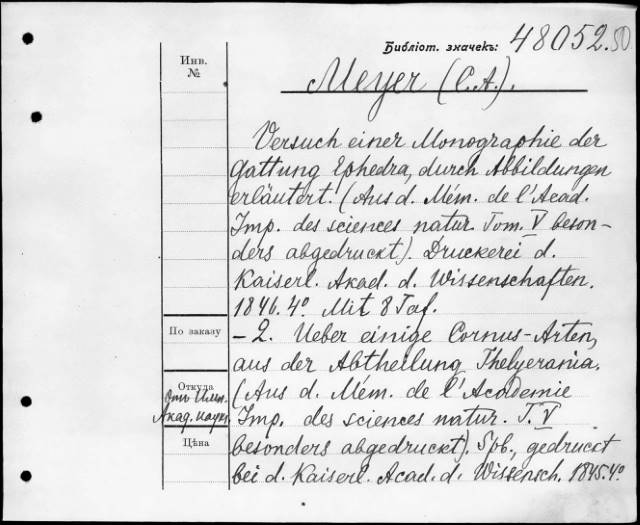 Библіот. значекъ: 48052.50
Инв.
№
Meyer (C.A.).
Versuch einer Monographie der
Gattung Ephedra, durch Abbildungen
erläutert. (Aus d. Mém. de l'Acad.
Imp. des sciences natur. Tom. V beson-
ders abgedruckt). Druckerei d.
Kaiserl. Akad. d. Wissenschaften.
1846. 4º. Mit 8 Taf.
По заказу
– 2. Ueber einige Cornus-Arten,
aus der Abtheilung Thelycrania.
Откуда
Отъ Имп.
Акад. наукъ
(Aus d. Mém. de l'Academie
Imp. des sciences natur. T. V
Цѣна
besonders abgedruckt). Spb., gedruckt
bei d. Kaiserl. Acad. d. Wissensch. 1845. 4º